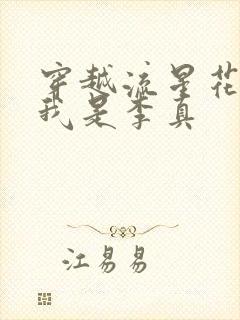 穿越流星花
我是李真
江易易